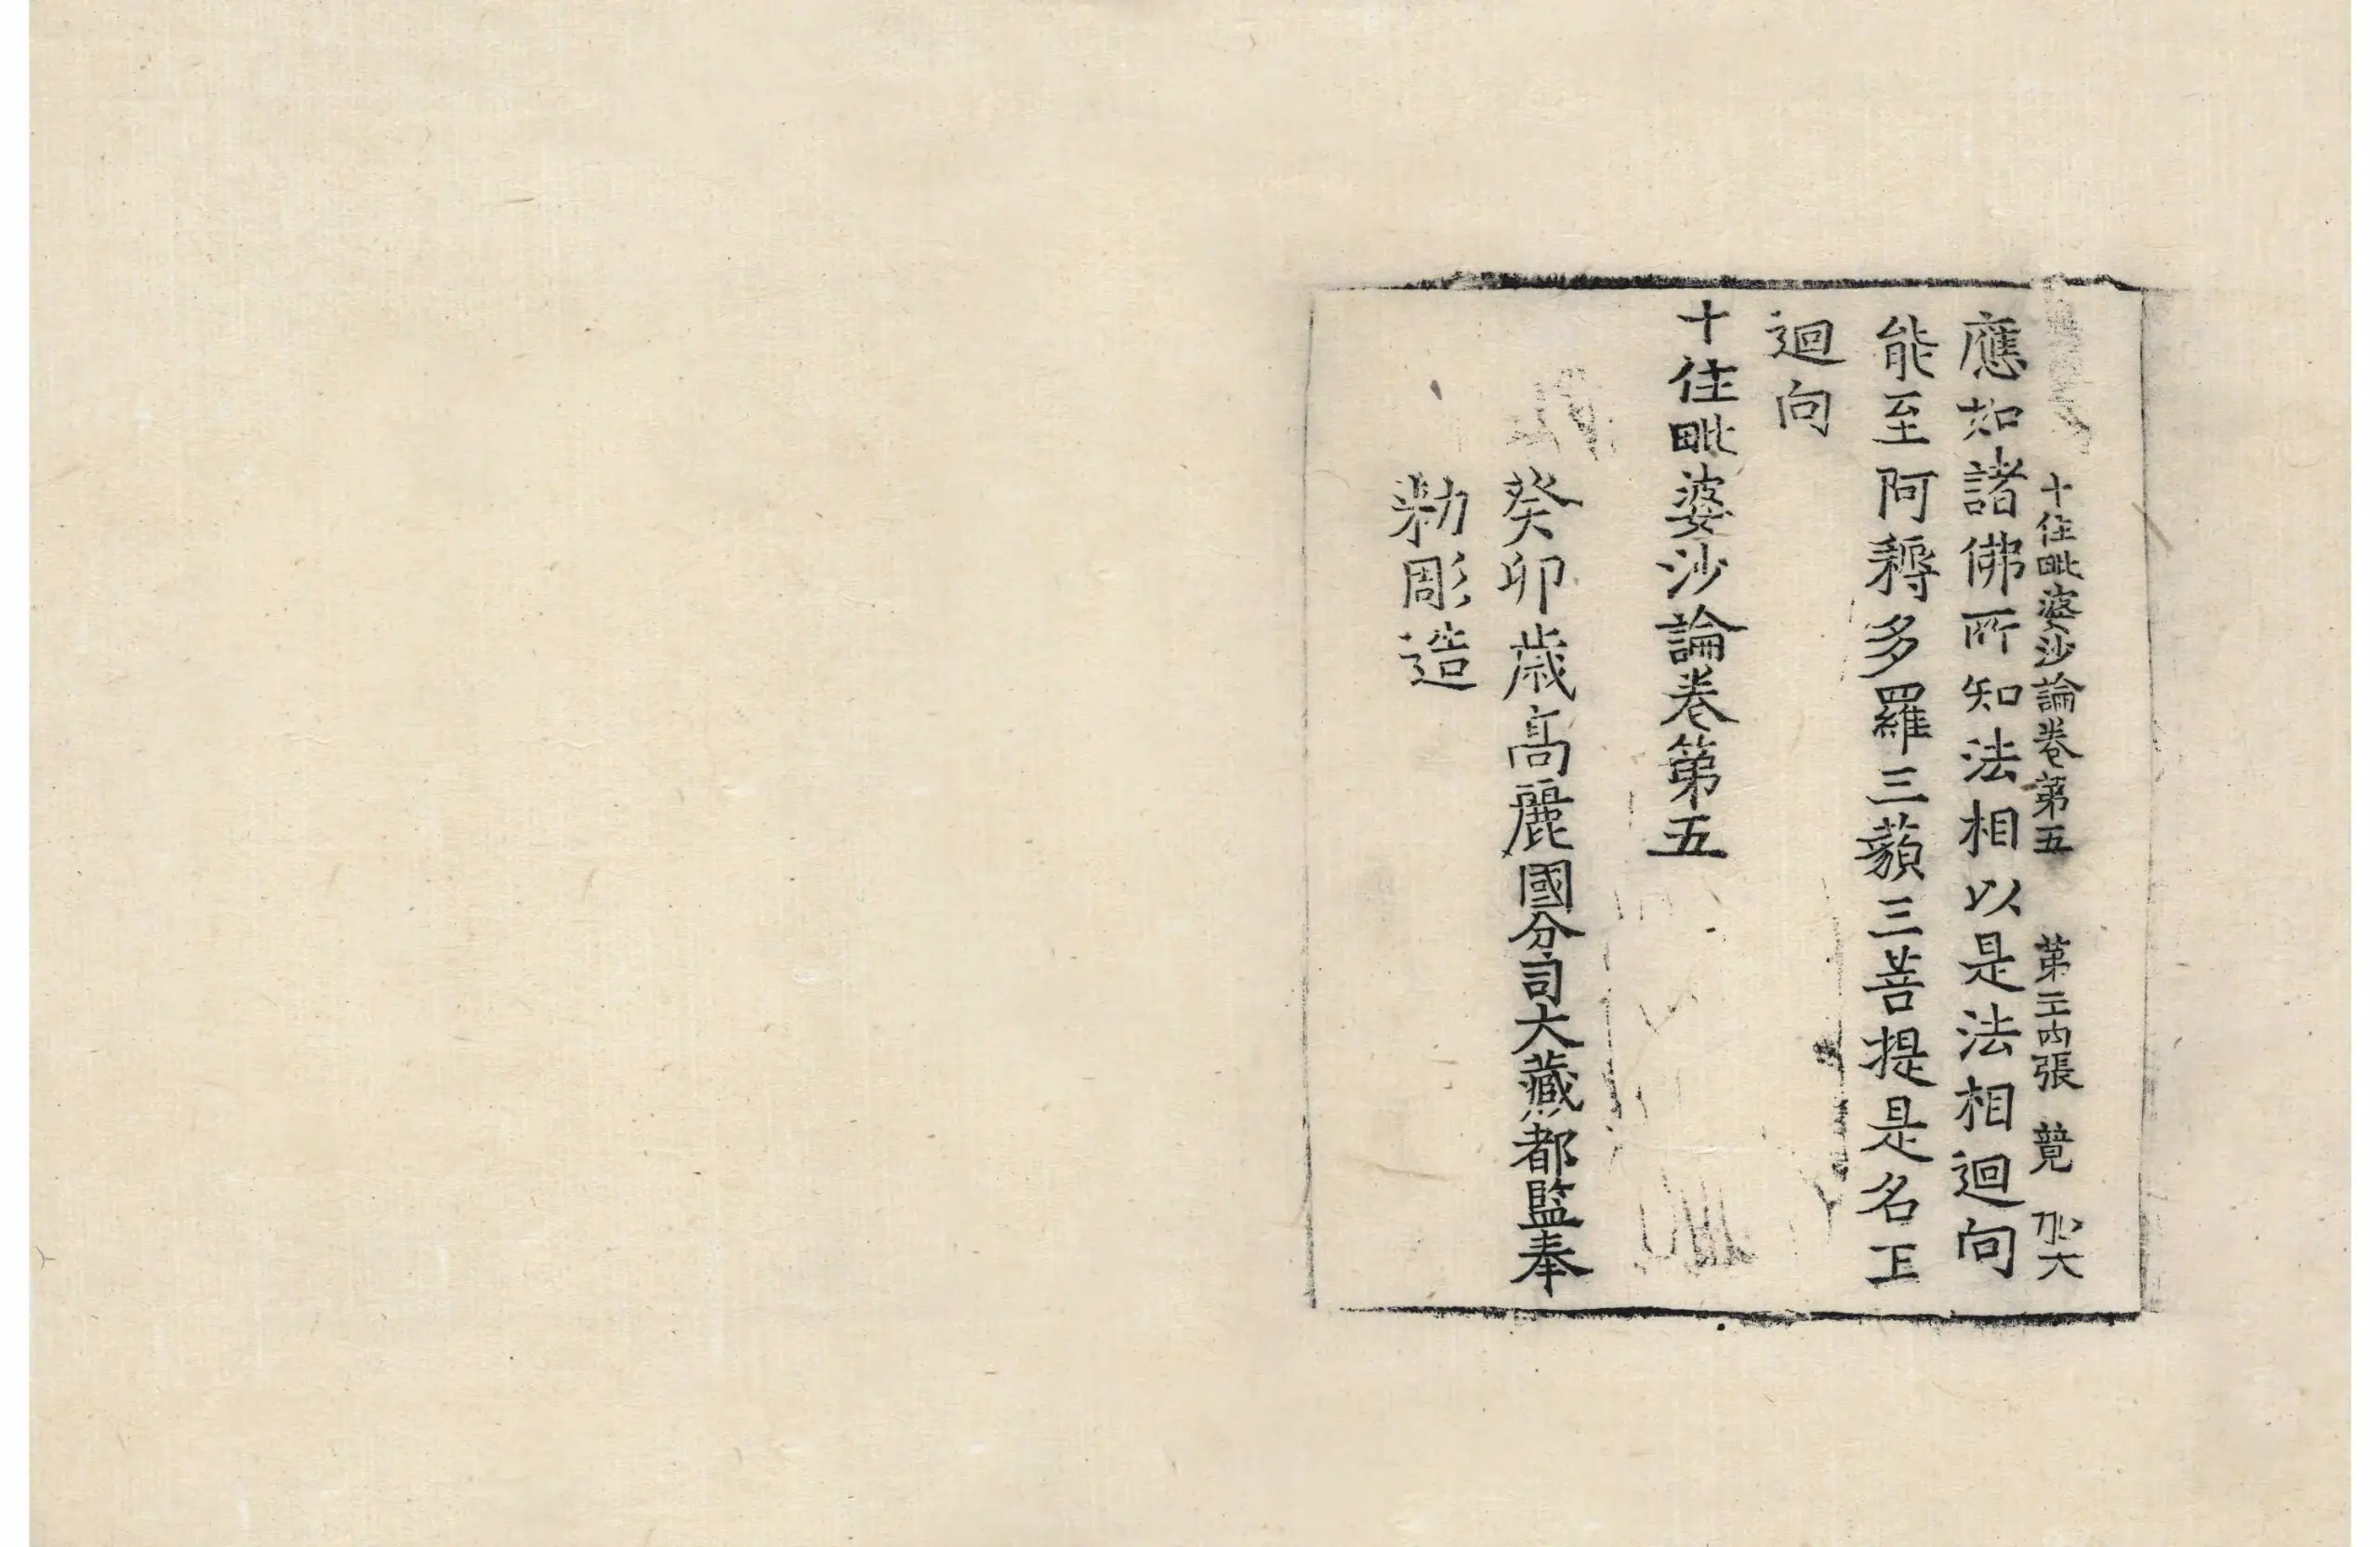 十住毗婆沙論卷第五　第二十四張　競
應如諸佛所知法相以是法相迴向
能至阿耨多羅三藐三菩提是名正
迴向
十住毗婆沙論卷第五
癸卯歲高麗國分司大藏都監奉
勑彫造